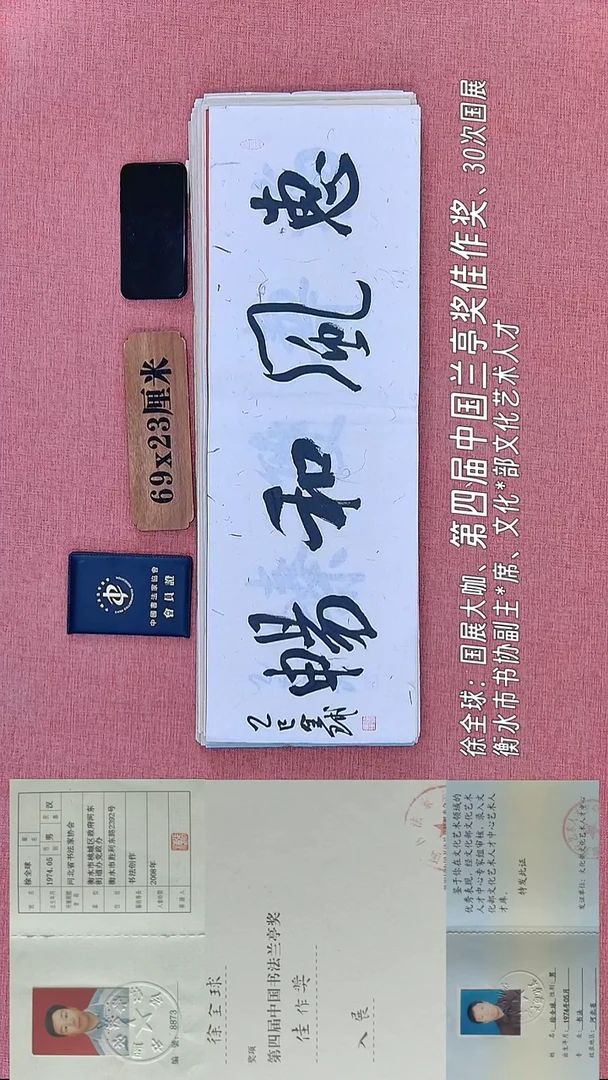 惠風和暢
乙巳全球
69x23厘米
中國書法家協會
會員證
徐全球：国展大咖、第四届中国兰亭奖佳作奖、30次国展
衡水市书协副主*席、文化*部文化艺术人才
徐全球
男
汉
1974.05
河北省书法家协会
衡水市桃城区政府河东
街道办党政办
衡水市胜利东路2202号
书法创作
2008年
8873
徐全球
奖项
第四届中国书法兰亭奖
佳作奖
入展
鉴于你在文化艺术领域的
优秀表现，经文化部文化艺术
人才中心专家组审核，录入文
化部文化艺术人才中心艺术人
才库。
特发此证
发证单位：文化部文化艺术人才中心
姓名：徐全球 性别：男
出生年月：1974年05月
专业：书法